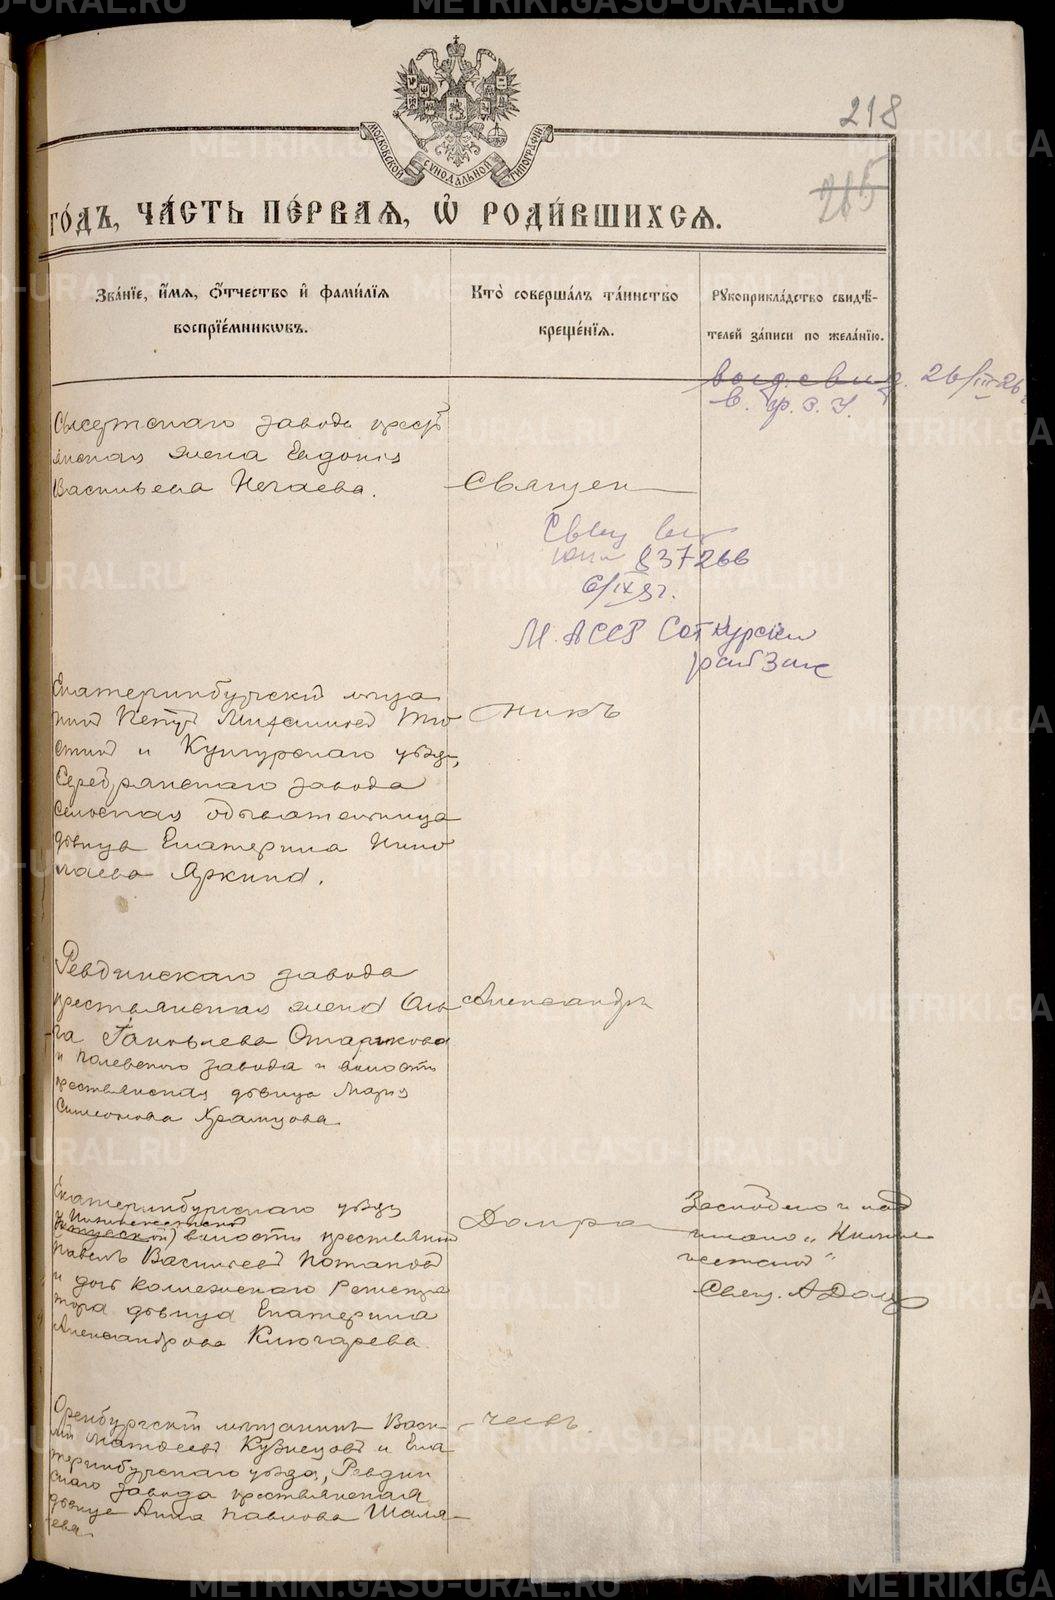 218
215
МОСКОВСКОЙ СѴНОДАЛЬНОЙ ТИПОГРАФІИ
го́дъ, ча́сть пе́рвая, ѡ҆ роди́вшихся.
Зва́нїе, и҆́мя, ѻ҆́тчество и҆ фами́лїя
воспрїе́мникѡвъ.
Кто̀ соверша́лъ та́инство
креще́нїя.
Рꙋкоприкла́дство свидѣ́-
телей за́писи по жела́нїю.
26/III 26
в. гр. З. У.
Сысертскаго завода кресть
янская жена Евдокія
Васильева Нечаева.
Священ
837266
6/IX 3 г.
М. АССР
Екатеринбургскій мѣща
нинъ Петръ Михаиловъ
и Кунгурскаго уѣзда,
Серебрянскаго завода
сельская обывательница
дѣвица Екатерина Нико
лаева Яркина.
никъ
Ревдинскаго завода
крестьянская жена Оль
га Яковлева Старикова
и Полевского завода и волости
крестьянская дѣвица Марія
Симеонова Храмцова.
Александръ
Екатеринбургскаго уѣзда
волости крестьянинъ
Павелъ Васильевъ Потаповъ
и дочь Коллежскаго Регистра
тора дѣвица Екатерина
Александрова Ключарева.
Домра
Свящ. А Дом
Оренбургскій мѣщанинъ Васи-
лій Матѳеевъ Кузнецовъ и Ека
теринбургскаго уѣзда, Ревдин
скаго завода крестьянская
дѣвица Анна Павлова Шаля-
ева.
чевъ.
METRIKI.GASO-URAL.RU